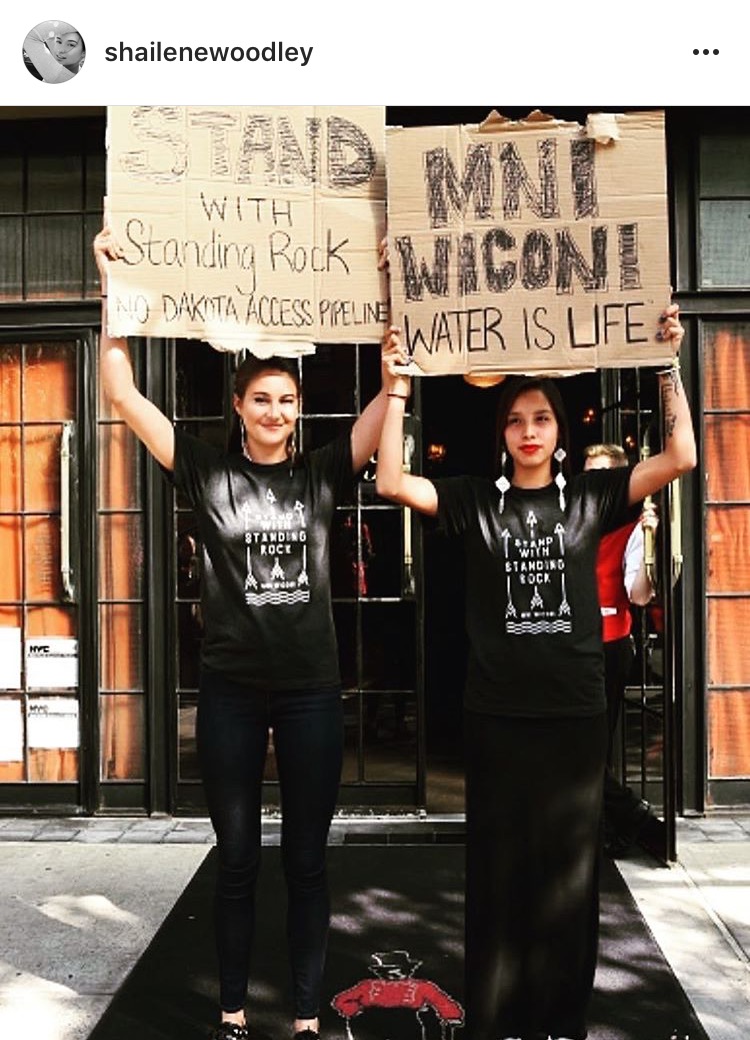 shailenewoodley
STAND
WITH
Standing Rock
NO DAKOTA ACCESS PIPELINE
MNI
WICONI
"WATER IS LIFE"
STAND
WITH
STANDING
ROCK
MNI WICONI
STAND
WITH
STANDING
ROCK
MNI WICONI
NYC
NYC